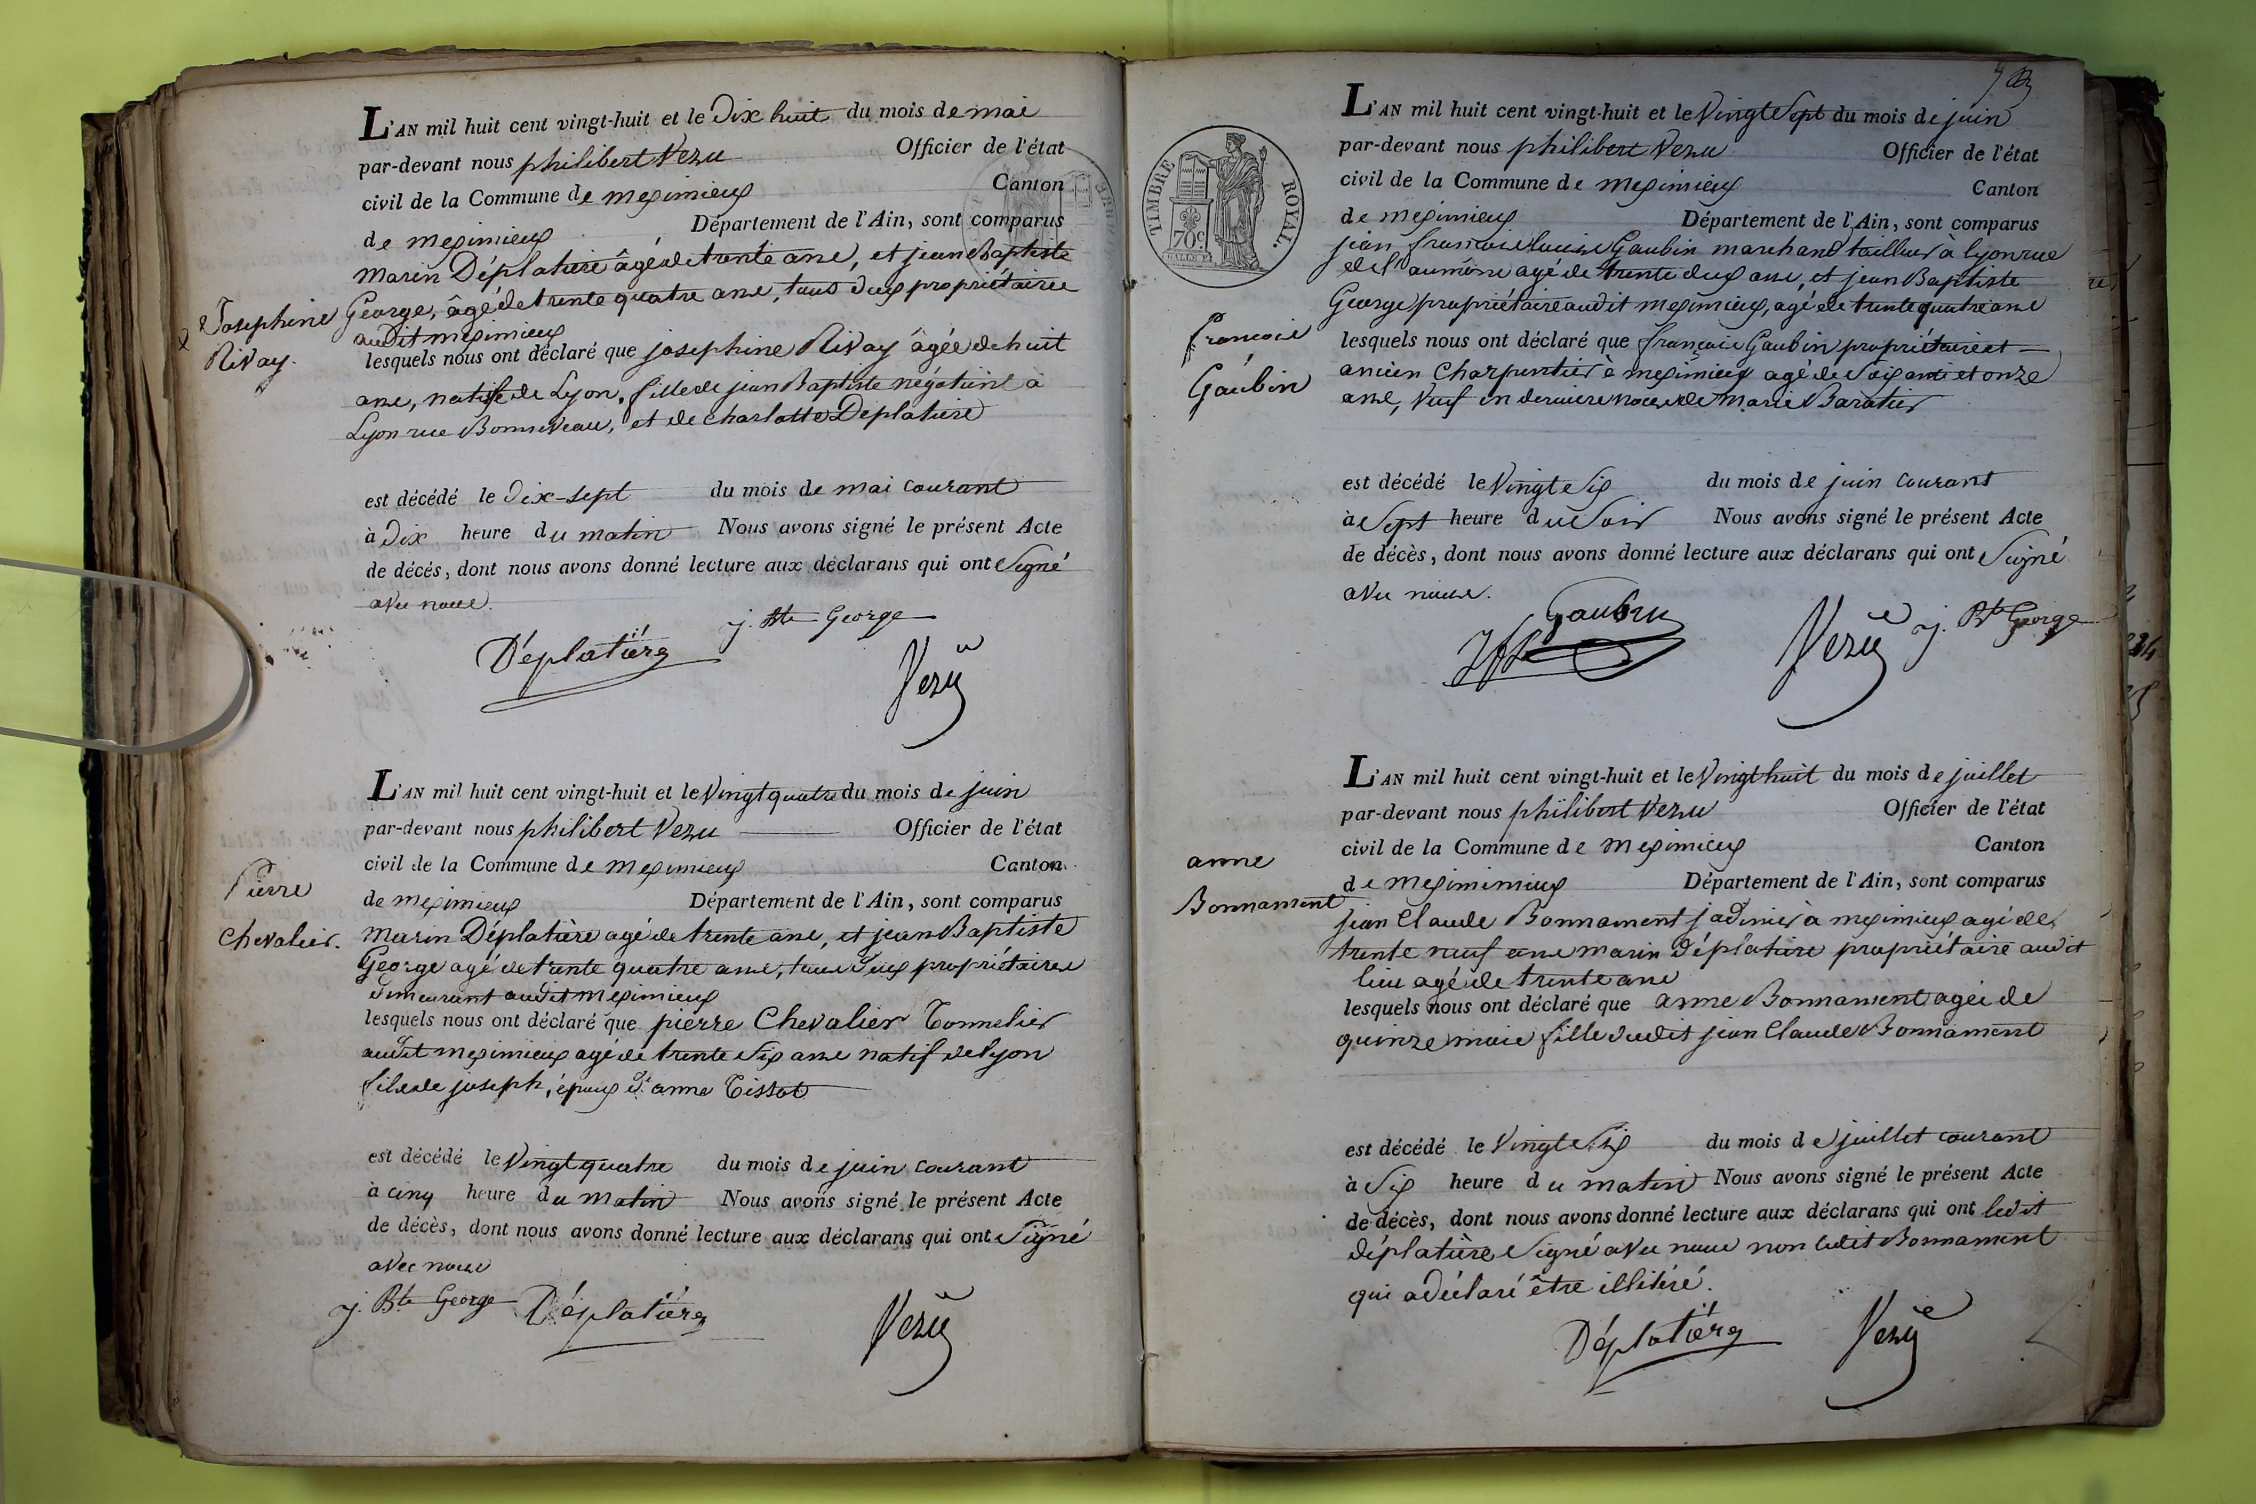 L'AN mil huit cent vingt-huit et le Dix huit du mois de mai
par-devant nous philibert Vezu Officier de l'état
civil de la Commune de meximieux Canton
de meximieux Département de l'Ain, sont comparus
Marin Déplatière âgé de trente ans, et jean Baptiste
George, âgé de trente quatre ans, tous deux propriétaires
audit meximieux
Josephine
Rivay.
lesquels nous ont déclaré que josephine Rivay âgée de huit
ans, native de Lyon, fille de jean Baptiste négotiant à
Lyon rue Bonneveau, et de charlotte Deplatiere
est décédé le dix-sept du mois de mai courant
à Dix heure du matin Nous avons signé le présent Acte
de décés, dont nous avons donné lecture aux déclarans qui ont Signé
avec nous.
j. Bte George
Déplatière
Vezu
L'AN mil huit cent vingt-huit et le Vingt quatre du mois de juin
par-devant nous philibert Vezu Officier de l'état
civil de la Commune de meximieux Canton
de meximieux Département de l'Ain, sont comparus
Pierre
Chevalier.
Marin Déplatière agé de trente ans, et jean Baptiste
George agé de trente quatre ans, tous deux propriétaires
demeurant audit meximieux
lesquels nous ont déclaré que pierre Chevalier Tonnelier
audit meximieux agé de trente six ans natif de lyon
fils de joseph, époux d'anne Tissot
est décédé le Vingt quatre du mois de juin courant
à cinq heure du matin Nous avons signé le présent Acte
de décès, dont nous avons donné lecture aux déclarans qui ont Signé
avec nous
j. Bte George Déplatière Vezu
TIMBRE ROYAL.
70c
L'AN mil huit cent vingt-huit et le Vingt Sept du mois de juin
par-devant nous philibert Vezu Officier de l'état
civil de la Commune de meximieux Canton
de meximieux Département de l'Ain, sont comparus
jean françois Gaubin marchand tailleur à lyon rue
de l'aumône agé de trente deux ans, et jean Baptiste
George propriétaire audit meximieux, agé de trente quatre ans
francois
Gaubin
lesquels nous ont déclaré que françois Gaubin propriétaire et
ancien Charpentier à meximieux agé de Soixante et onze
ans, Veuf en derniere noces de Marie Baratier
est décédé le Vingt Six du mois de juin courant
à Sept heure du Soir Nous avons signé le présent Acte
de décès, dont nous avons donné lecture aux déclarans qui ont Signé
avec nous.
Gaubin
Vezu j. Bte George
L'AN mil huit cent vingt-huit et le Vingt huit du mois de juillet
par-devant nous philibert Vezu Officier de l'état
civil de la Commune de meximieux Canton
de meximimieux Département de l'Ain, sont comparus
anne
Bonnament
jean Claude Bonnament jadinier à meximieux agé de
trente neuf ans marin Déplatiere propriétaire audit
lieu agé de trente ans
lesquels nous ont déclaré que anne Bonnament agée de
quinze mois fille dudit jean Claude Bonnament
est décédé le Vingt Six du mois de juillet courant
à Six heure du matin Nous avons signé le présent Acte
de décès, dont nous avons donné lecture aux déclarans qui ont ledit
déplatière Signé avec nous non ledit Bonnament
qui a déclaré être illitéré.
Déplatière Vezu